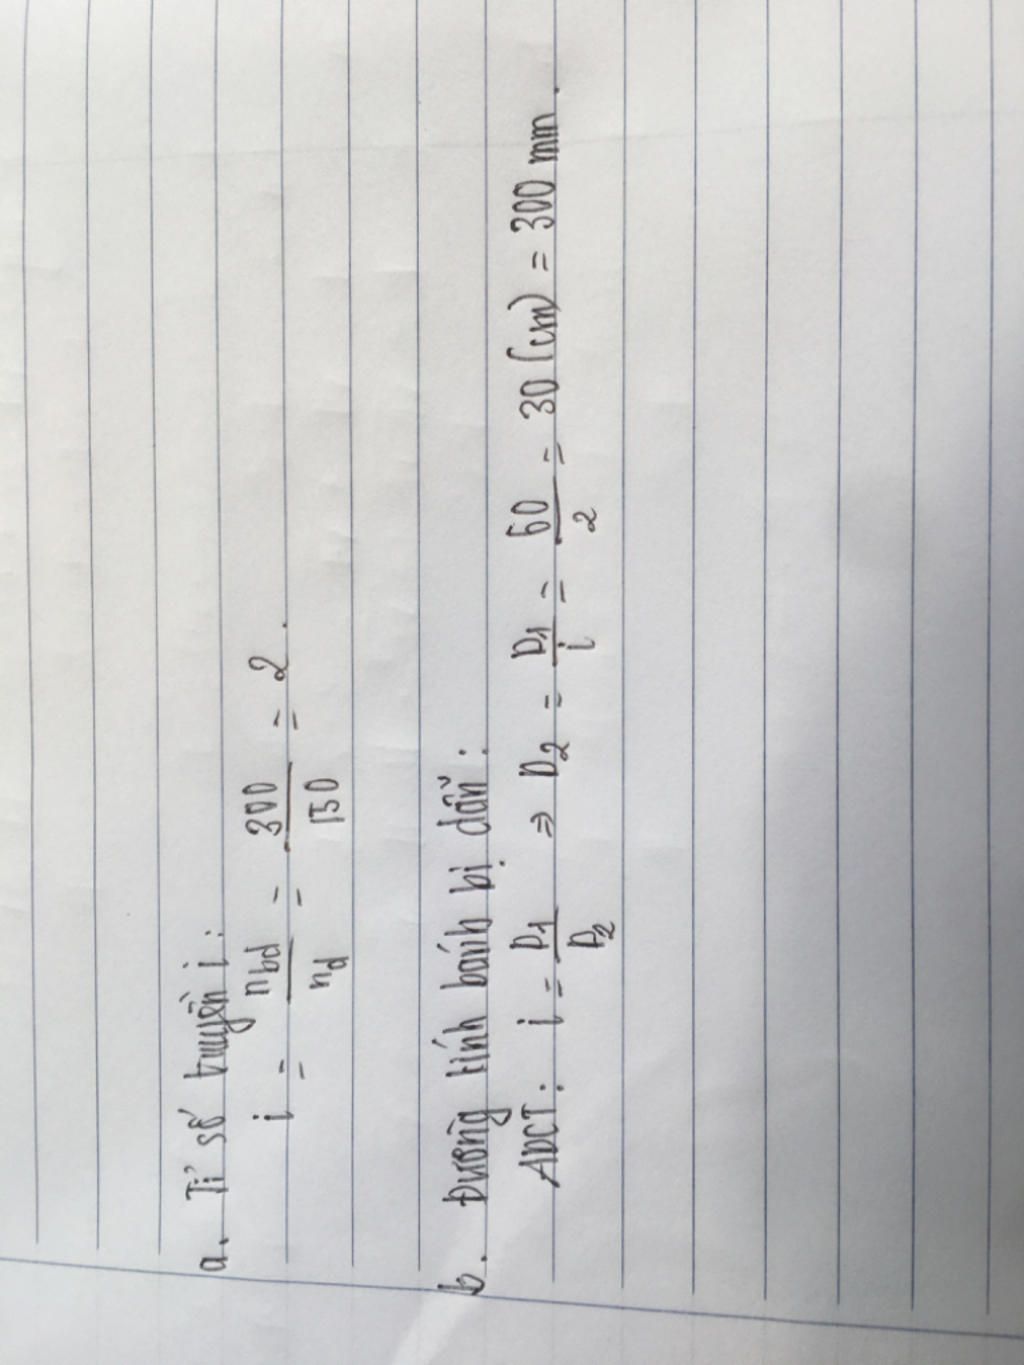 a. Tỉ số truyền i:
i = nbd/nd = 300/150 = 2.
b. Đường kính bánh bị dẫn:
ADCT: i = D1/D2 ⇒ D2 = D1/i = 60/2 = 30 (cm) = 300 mm.